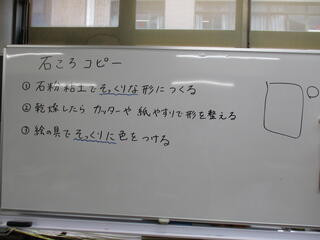 石ころコピー
① 石粉粘土でそっくりな形につくる
② 乾燥したら カッターや 紙やすりで形を整える
③ 絵の具で そっくりに色をつける